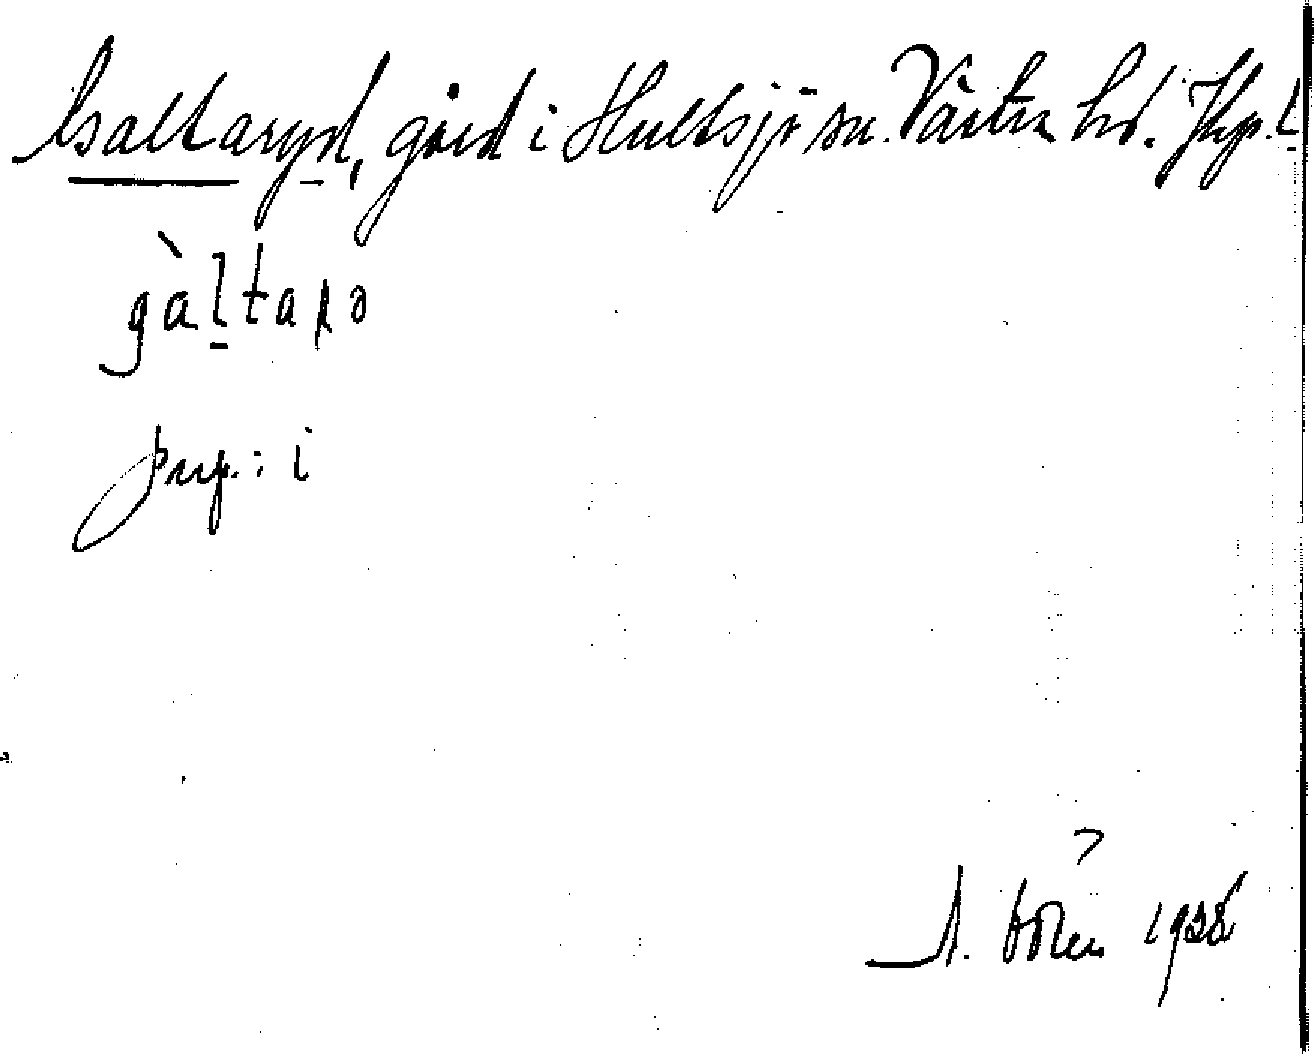 Galtaryd, gård i Hultsjö sn. Västra hd. Jkp. l
gàltarə
prep.: i
A. 1928